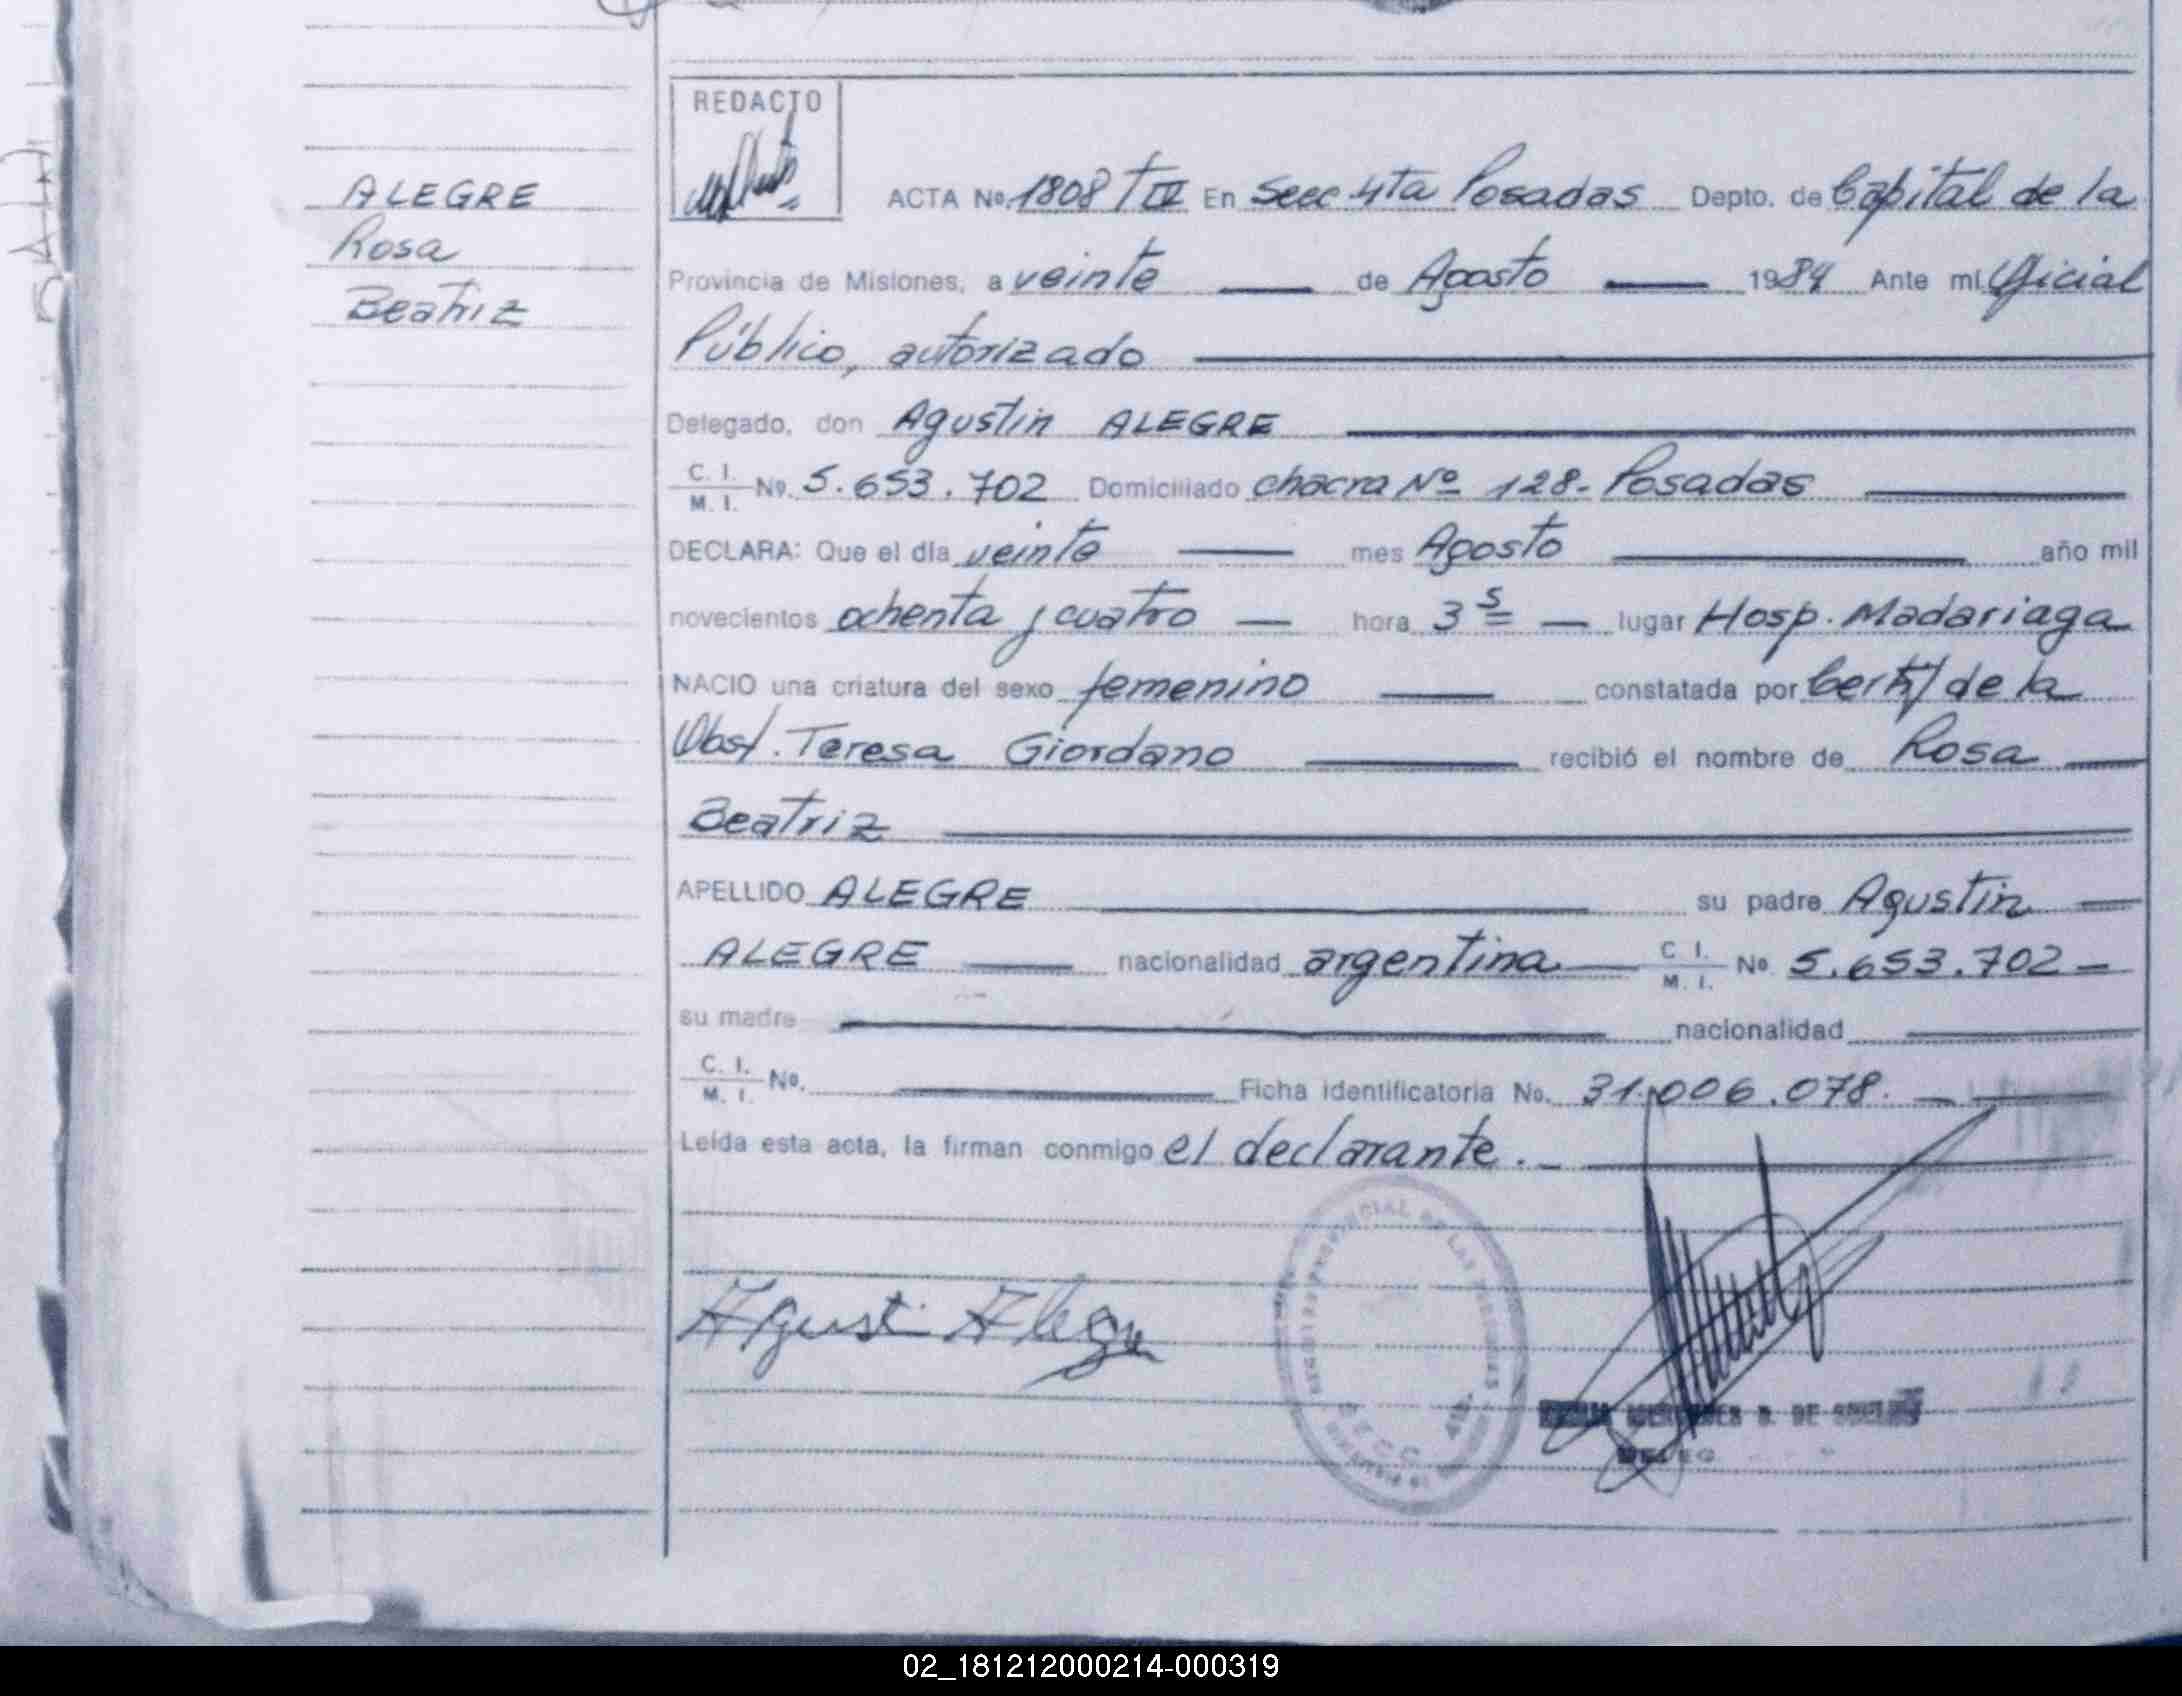 REDACTO
ALEGRE
Rosa
Beatriz
ACTA No. 1808 T III En Secc 4ta Posadas Depto. de Capital de la
Provincia de Misiones, a veinte de Agosto 1984 Ante mi Oficial
Público, autorizado
Delegado, don Agustin ALEGRE
C. I. M. I. No. 5.653.702 Domiciliado chacra Nº 128- Posadas
DECLARA: Que el día veinte mes Agosto año mil
novecientos ochenta y cuatro hora 3 s lugar Hosp. Madariaga
NACIO una criatura del sexo femenino constatada por Certif/ de la
Obst. Teresa Giordano recibió el nombre de Rosa
Beatriz
APELLIDO ALEGRE su padre Agustin
ALEGRE nacionalidad argentina C. I. M. I. No 5.653.702 -
su madre nacionalidad
C. I. M. I. No. Ficha identificatoria No. 31.006.078.
Leída esta acta, la firman conmigo el declarante.
Agusti Alegre
02_181212000214-000319